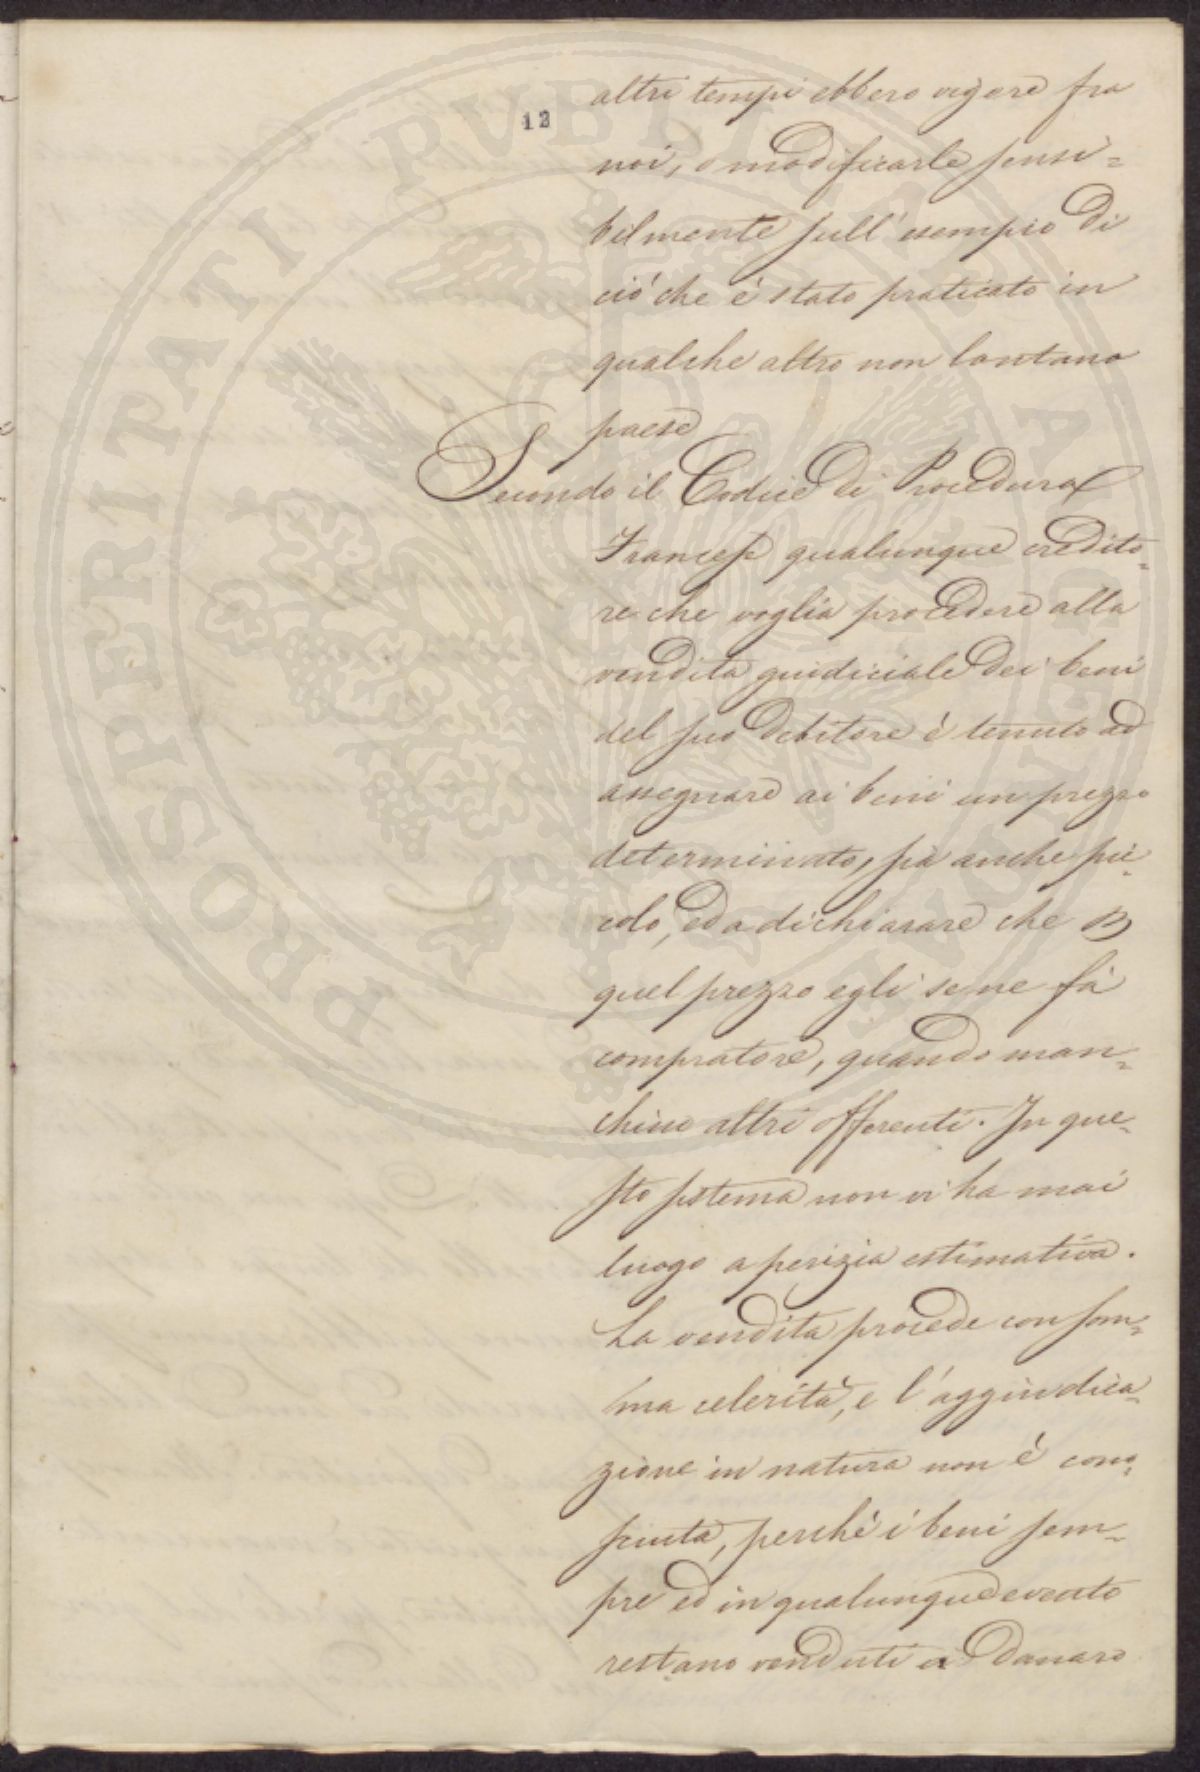 PROSPERITATI PVBLICAE AVGENDAE
12
altri tempi ebbero vigore fra
noi, o modificarle sensi=
bilmente sull' esempio di
ció che é stato praticato in
qualche altro non lontano
paese
Secondo il Codice di Procedura
Francese qualunque credito=
re che voglia procedere alla
vendita giudiciale dei beni
del suo debitore é tenuto ad
assegnare ai beni un prezzo
determinato, sia anche pic=
colo, ed a dichiarare che p
quel prezzo egli se ne fá
compratore, quando man=
chino altri offerenti. In que=
sto sistema non vi ha mai
luogo a perizia estimativa.
La vendita procede con som=
ma celeritá, e l'aggiudica=
zione in natura non é cono=
sciuta, perché i beni sem=
pre ed in qualunque evento
restano venduti a danaro